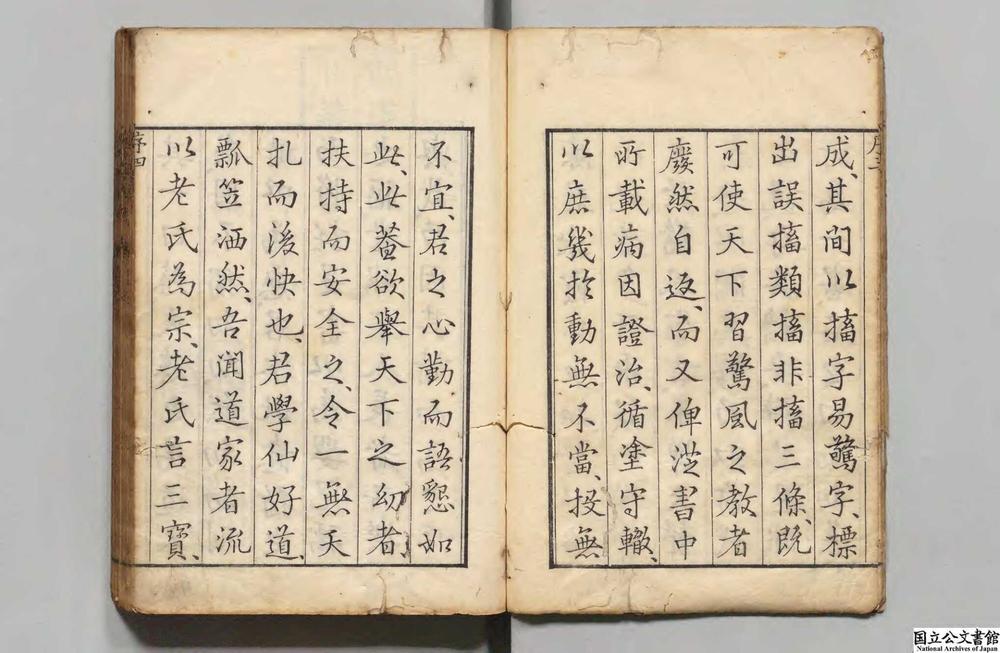 成、其間以搐字易驚字、標
出誤搐類搐非搐三條、既
可使天下習驚風之教者
廢然自返、而又俾從書中
所載病因證治、循塗守轍、
以庶幾於動無不當、投無
不宜、君之心勤而語懇如
此、此蓋欲舉天下之幼者、
扶持而安全之、令一無夭
札而後快也、君學仙好道、
瓢笠洒然、吾聞道家者流
以老氏為宗、老氏言三寶、
序四
国立公文書館
National Archives of Japan